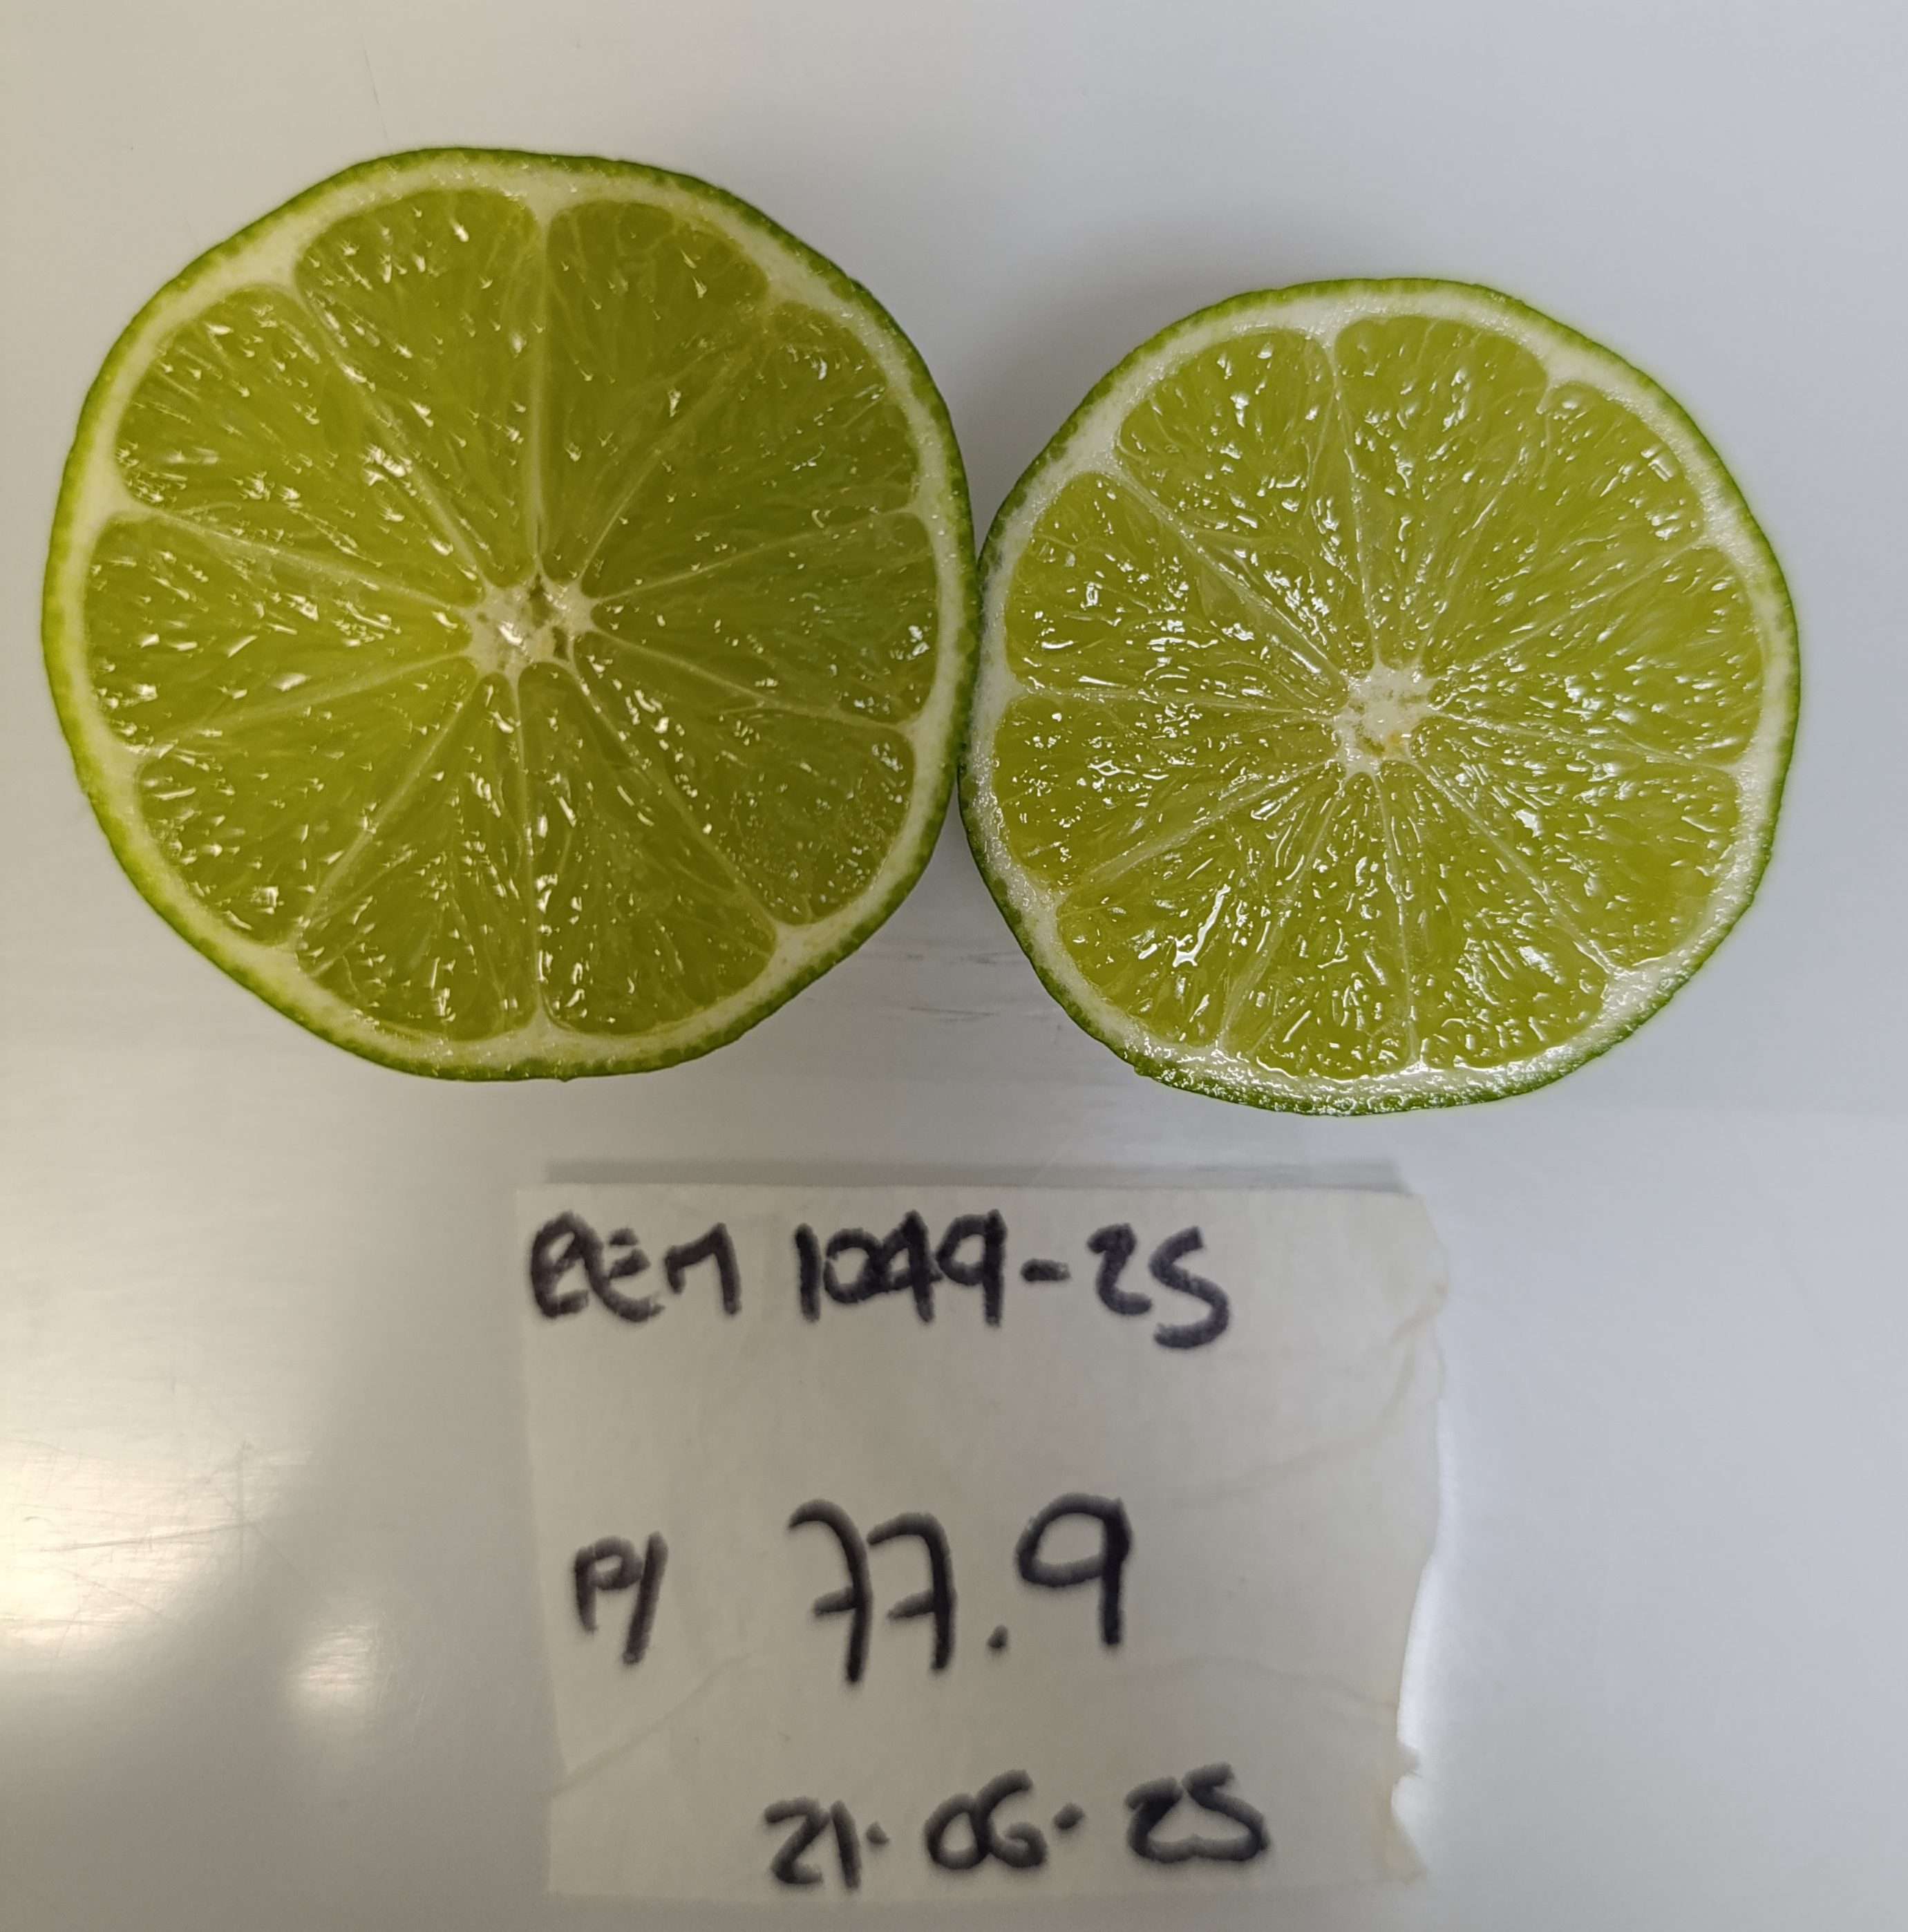 REM 1049-25
P/ 77.9
21.06.25